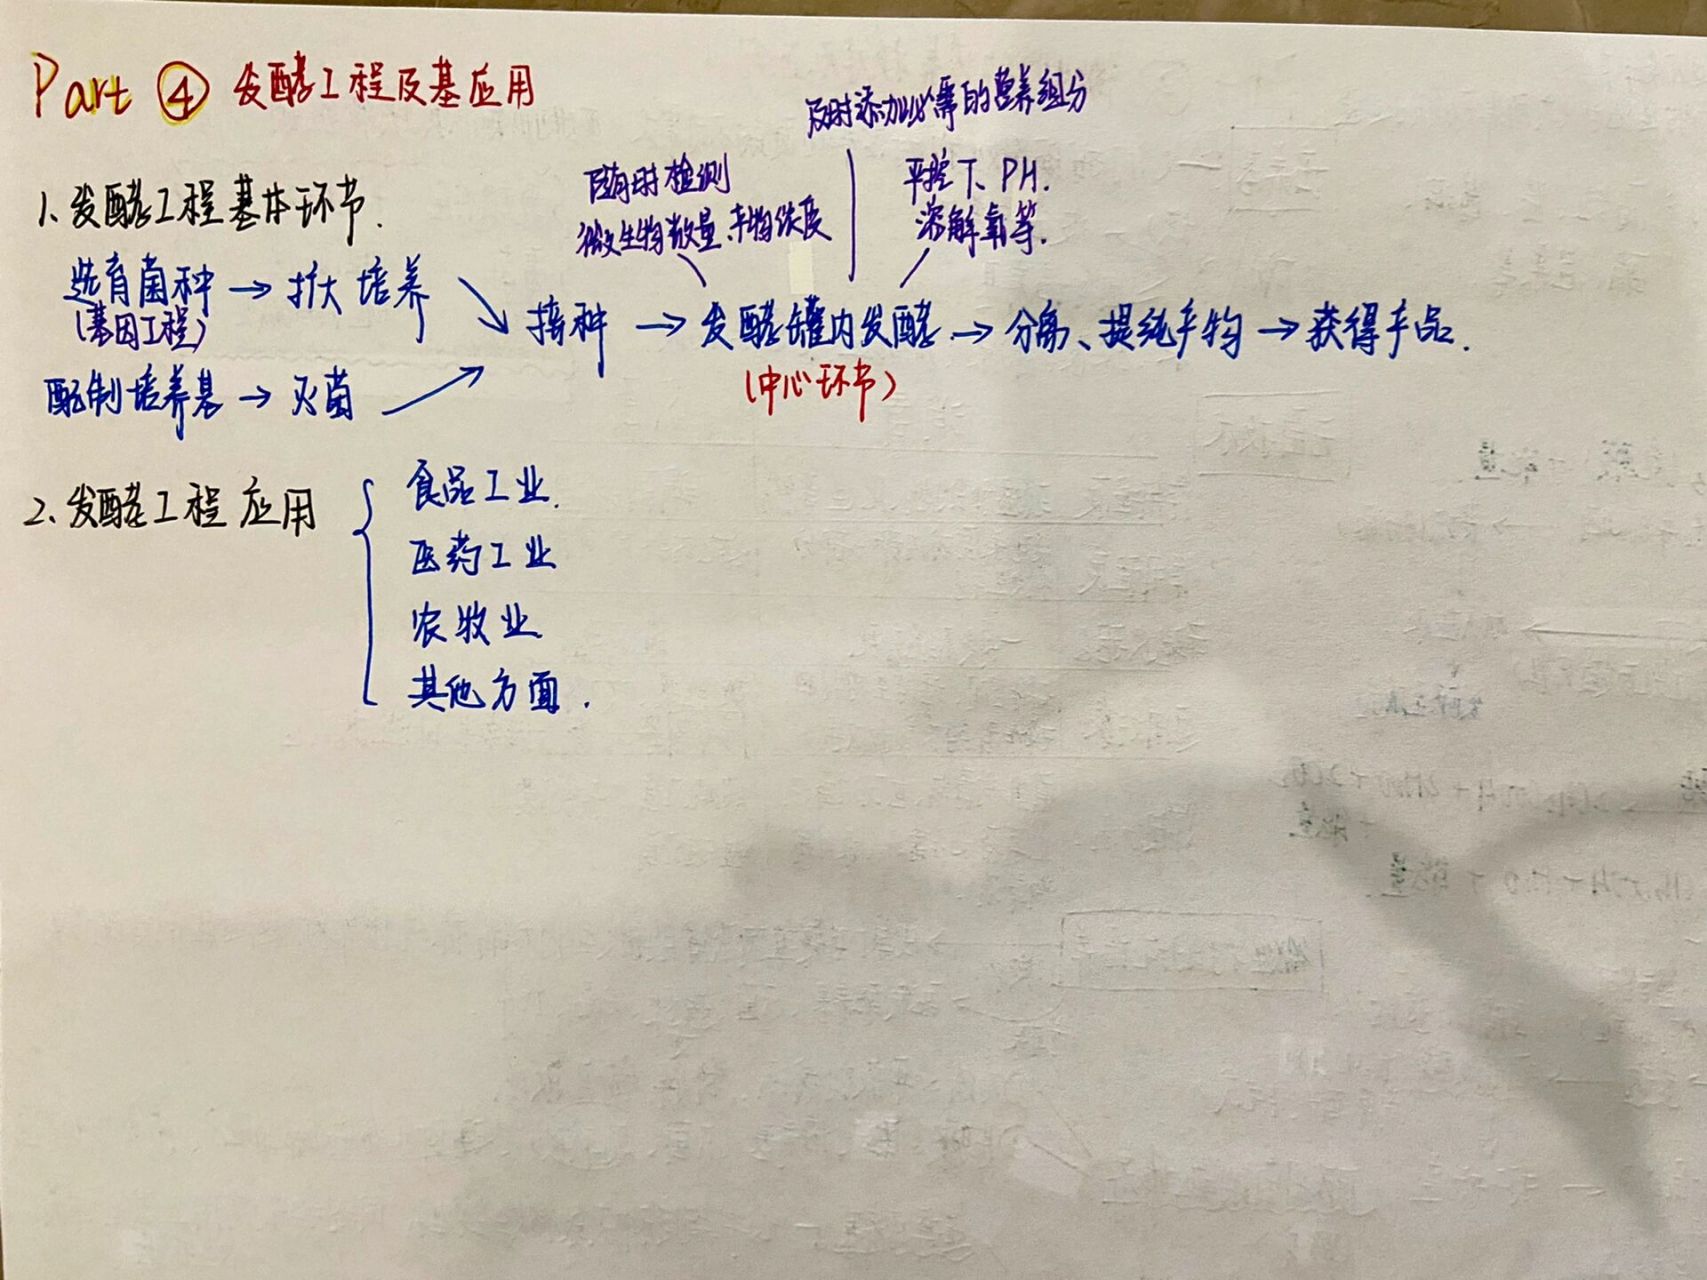 Part ④ 发酵工程及基应用
1、发酵工程基本环节.
及时添加必需的营养组分
随时检测
微生物数量、产物浓度
严控下、PH.
溶解氧等.
选育菌种 → 扩大培养
(基因工程)
接种 → 发酵罐内发酵 → 分离、提纯产物 → 获得产品.
(中心环节)
配制培养基 → 灭菌
2、发酵工程应用
食品工业.
医药工业
农牧业
其他方面.